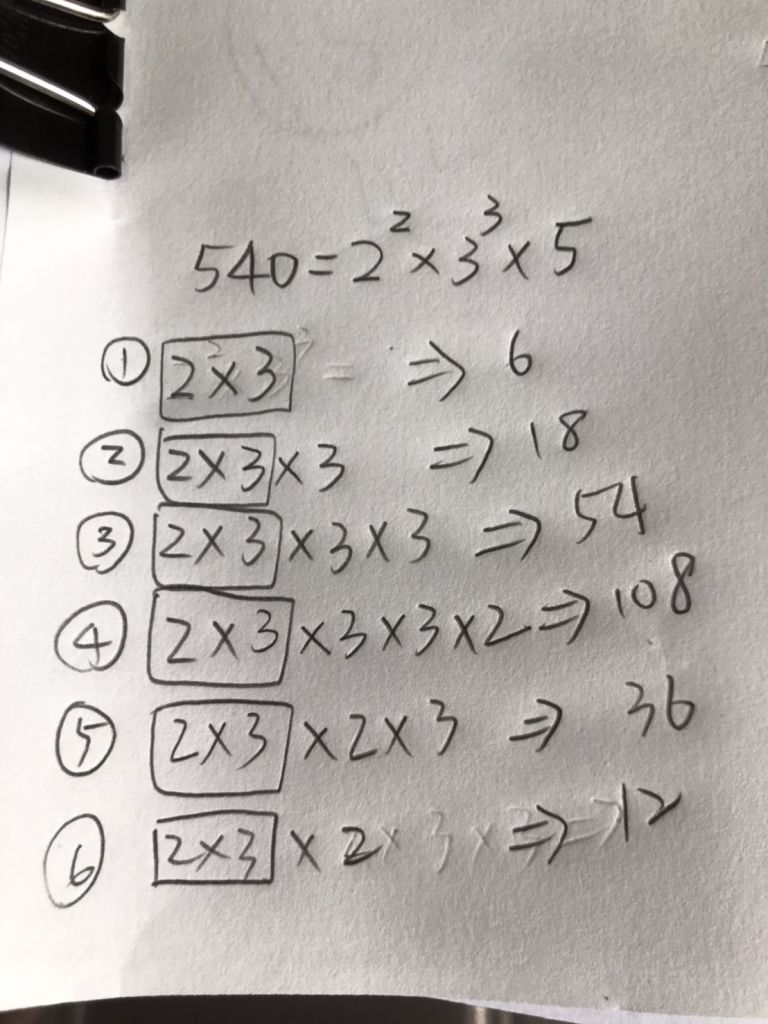 540=2²×3³×5
① 2×3 ⇒ 6
② 2×3×3 ⇒ 18
③ 2×3×3×3 ⇒ 54
④ 2×3×3×3×2⇒108
⑤ 2×3×2×3 ⇒ 36
⑥ 2×3×2 ⇒ 12